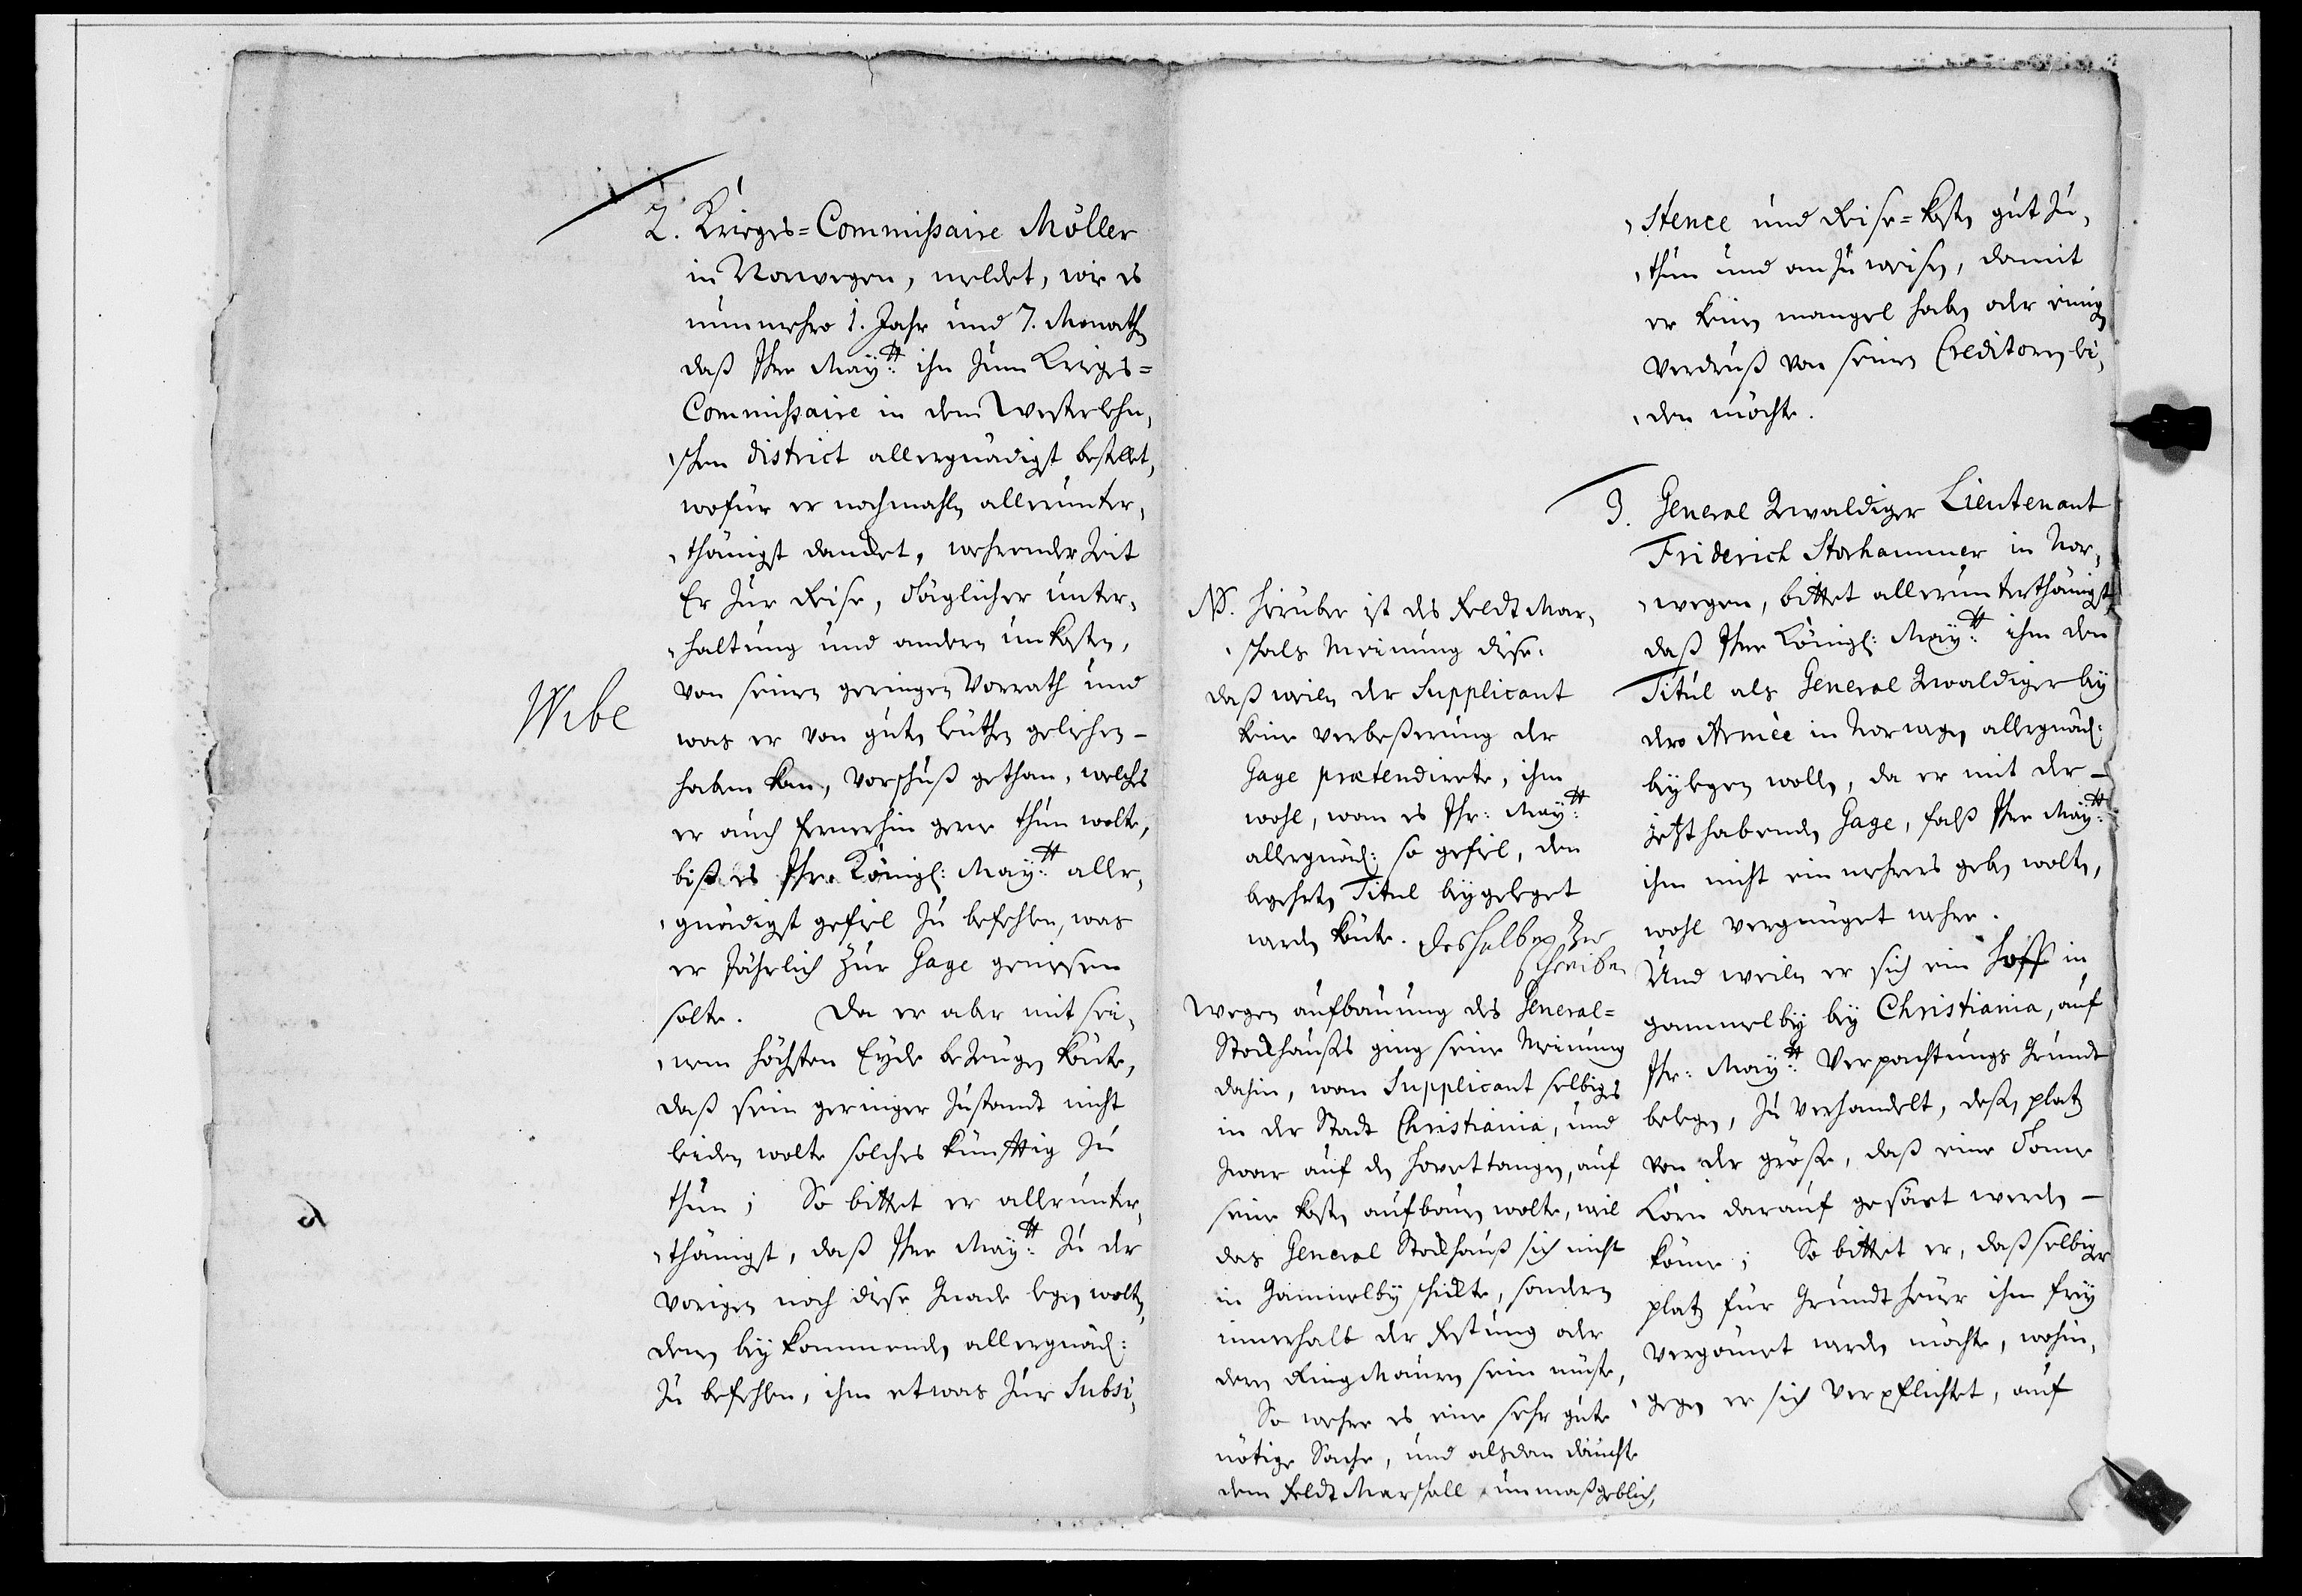 2. Krieges=Commißaire Möller
in Norwegen, meldet, wie es
nunmehro 1. Jahr und 7. Monath
daß Ihre Maÿ:tt ihn zum Kriegs=
Commißaire in dem Westerlehn,
,schen district allergnädigst bestellet,
wofür er nochmahln allerunter,
,thänigst dancket, wehrender Zeit
Er zur Reise, Täglicher unter,
,haltung und andern unkosten,
von seinen geringen Vorrath und
Wibe
was er von guten leuthen geliehen –
haben kan, Vorschuß gethan, welches
er auch fernerhin gerne thun wolte,
biß es Ihre Königl: Maÿ:tt aller,
,gnädigst gefiel zu befehlen, was
er Jährlich zur Gage geniesen
solte. Da er aber mit sei,
,nem höchsten Eyde bezeugen könte,
daß sein geringer Zustandt nicht
leiden wolte solches künfftig zu
thun; So bittet er allerunter,
,thänigst, daß Ihre Maÿ:tt zu der
vorigen noch diese Gnade legen wolten,
denen beÿkommenden allergnäd:
zu befehlen, ihm etwas zur Subsi,
,stence und Reise=kosten gut zu,
,thun und anzuweisen, damit
er keinen mangel haben oder einigen
Verdruß von seinen Creditoren lei,
,den möchte.
3. General Gwaldiger Lieutenant
Friderich Storhammer in Nor,
,wegen, bittet allerunterthänigst,
daß Ihre Königl: Maÿ:tt ihm den
Titul als General Gwaldiger beÿ
dero Armèe in Norwegen allergnäd:
beÿlegen wollen, da er mit der –
jetzt habenden Gage, falß Ihre Maÿ:tt
ihm nicht ein mehrers geben wolten,
wohl vergnüget wehre.
Und weilen er sich ein Hoff in
gammelbÿ beÿ Christiania, auf
Ihr: Maÿ:tt Verpachtungs Grundt
belegen, zu verhandelt, deßen platz
von der größe, daß eine Tonne
Korn darauf gesäet werden –
könne; So bittet er, daß selbiger
platz für Grundtheuer ihm freÿ
vergönnet werden möchte, wohin,
,gegen er sich verpflichtet, auf
NB. Hierüber ist des Feldt Mar,
,schals Meinung diese.
daß weilen der Supplicant
keine verbeßerung der
Gage prætendirete, ihm
wohl, wan es Ihr: Maÿ:tt
allergnäd: so gefiel, den
begehrten Titul beÿgeleget
werden könte. deshalben zu
schreiben
Wegen aufbauung des General=
Stockhauses ging seine Meinung
dahin, wan Supplicant selbiges
in der Stadt Christiania, und
zwar auf den Hovettangen, auf
seine kosten aufbauen wolte, weil
das General Stockhauß sich nicht
in Gammelbÿ schickte, sondern
innerhalb der Festung oder
deren RingMauren sein müste,
So wehre es eine sehr gute
nötige Sache, und alsdan däuchte
dem Feldt Marschall unmaßgeblich,